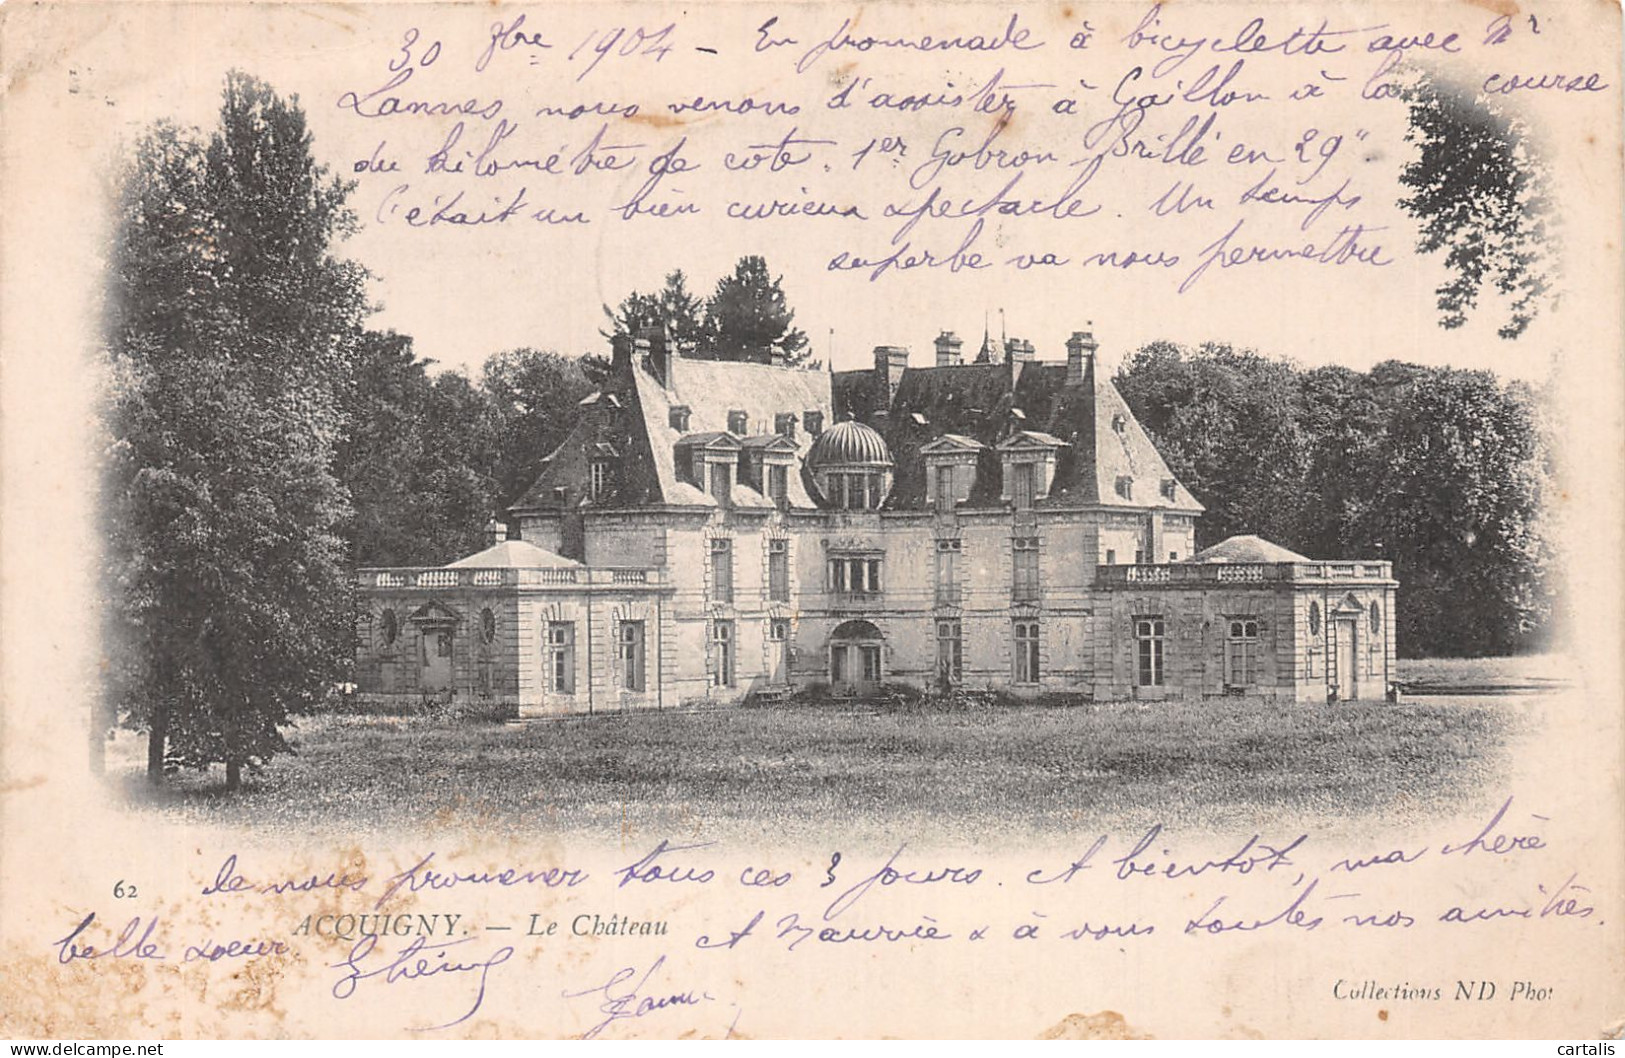 30 8bre 1904 - En promenade à bicyclette avec Mr
Lannes, nous venons d'assister à Gaillon à la course
du kilomètre de côte. 1er Gobron-Brillé en 29".
C'était un bien curieux spectacle. Un temps
superbe va nous permettre
de nous promener tous ces 3 jours. A bientôt, ma chère
62
ACQUIGNY. — Le Château
belle soeur
A Maurice & à vous toutes nos amitiés.
Collections ND Phot
cartalis